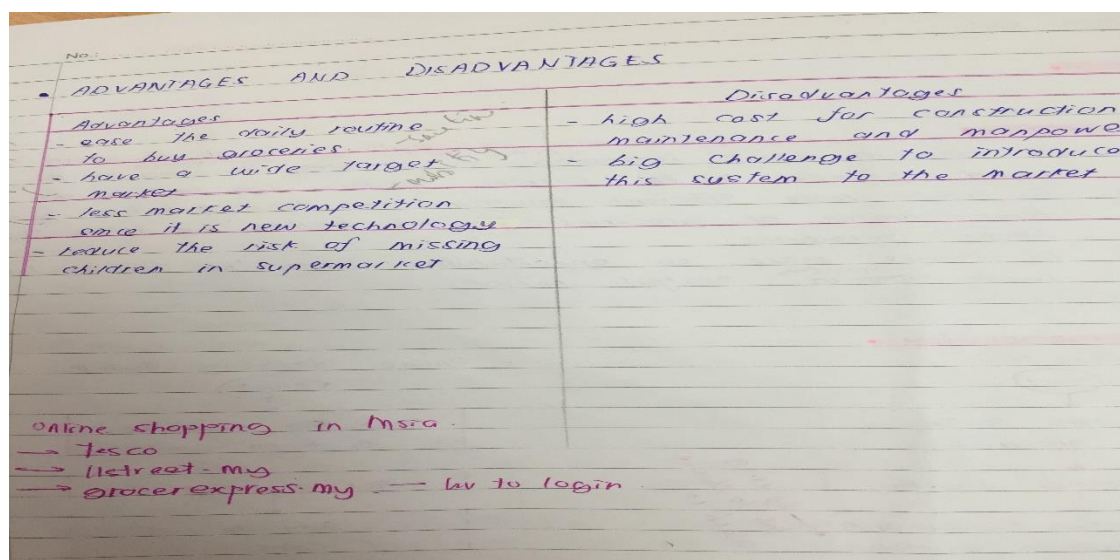 No.:
• ADVANTAGES AND DISADVANTAGES
Advantages
- ease the daily routine
to buy groceries.
- have a wide target
market
- less market competition
since it is new technology
- reduce the risk of missing
children in supermarket
Disadvantages
- high cost for construction
maintenance and manpowe
- big challenge to introduce
this system to the market
online shopping in Msia.
→ Tesco
→ 11street.my
→ grocerexpress.my — hv to login